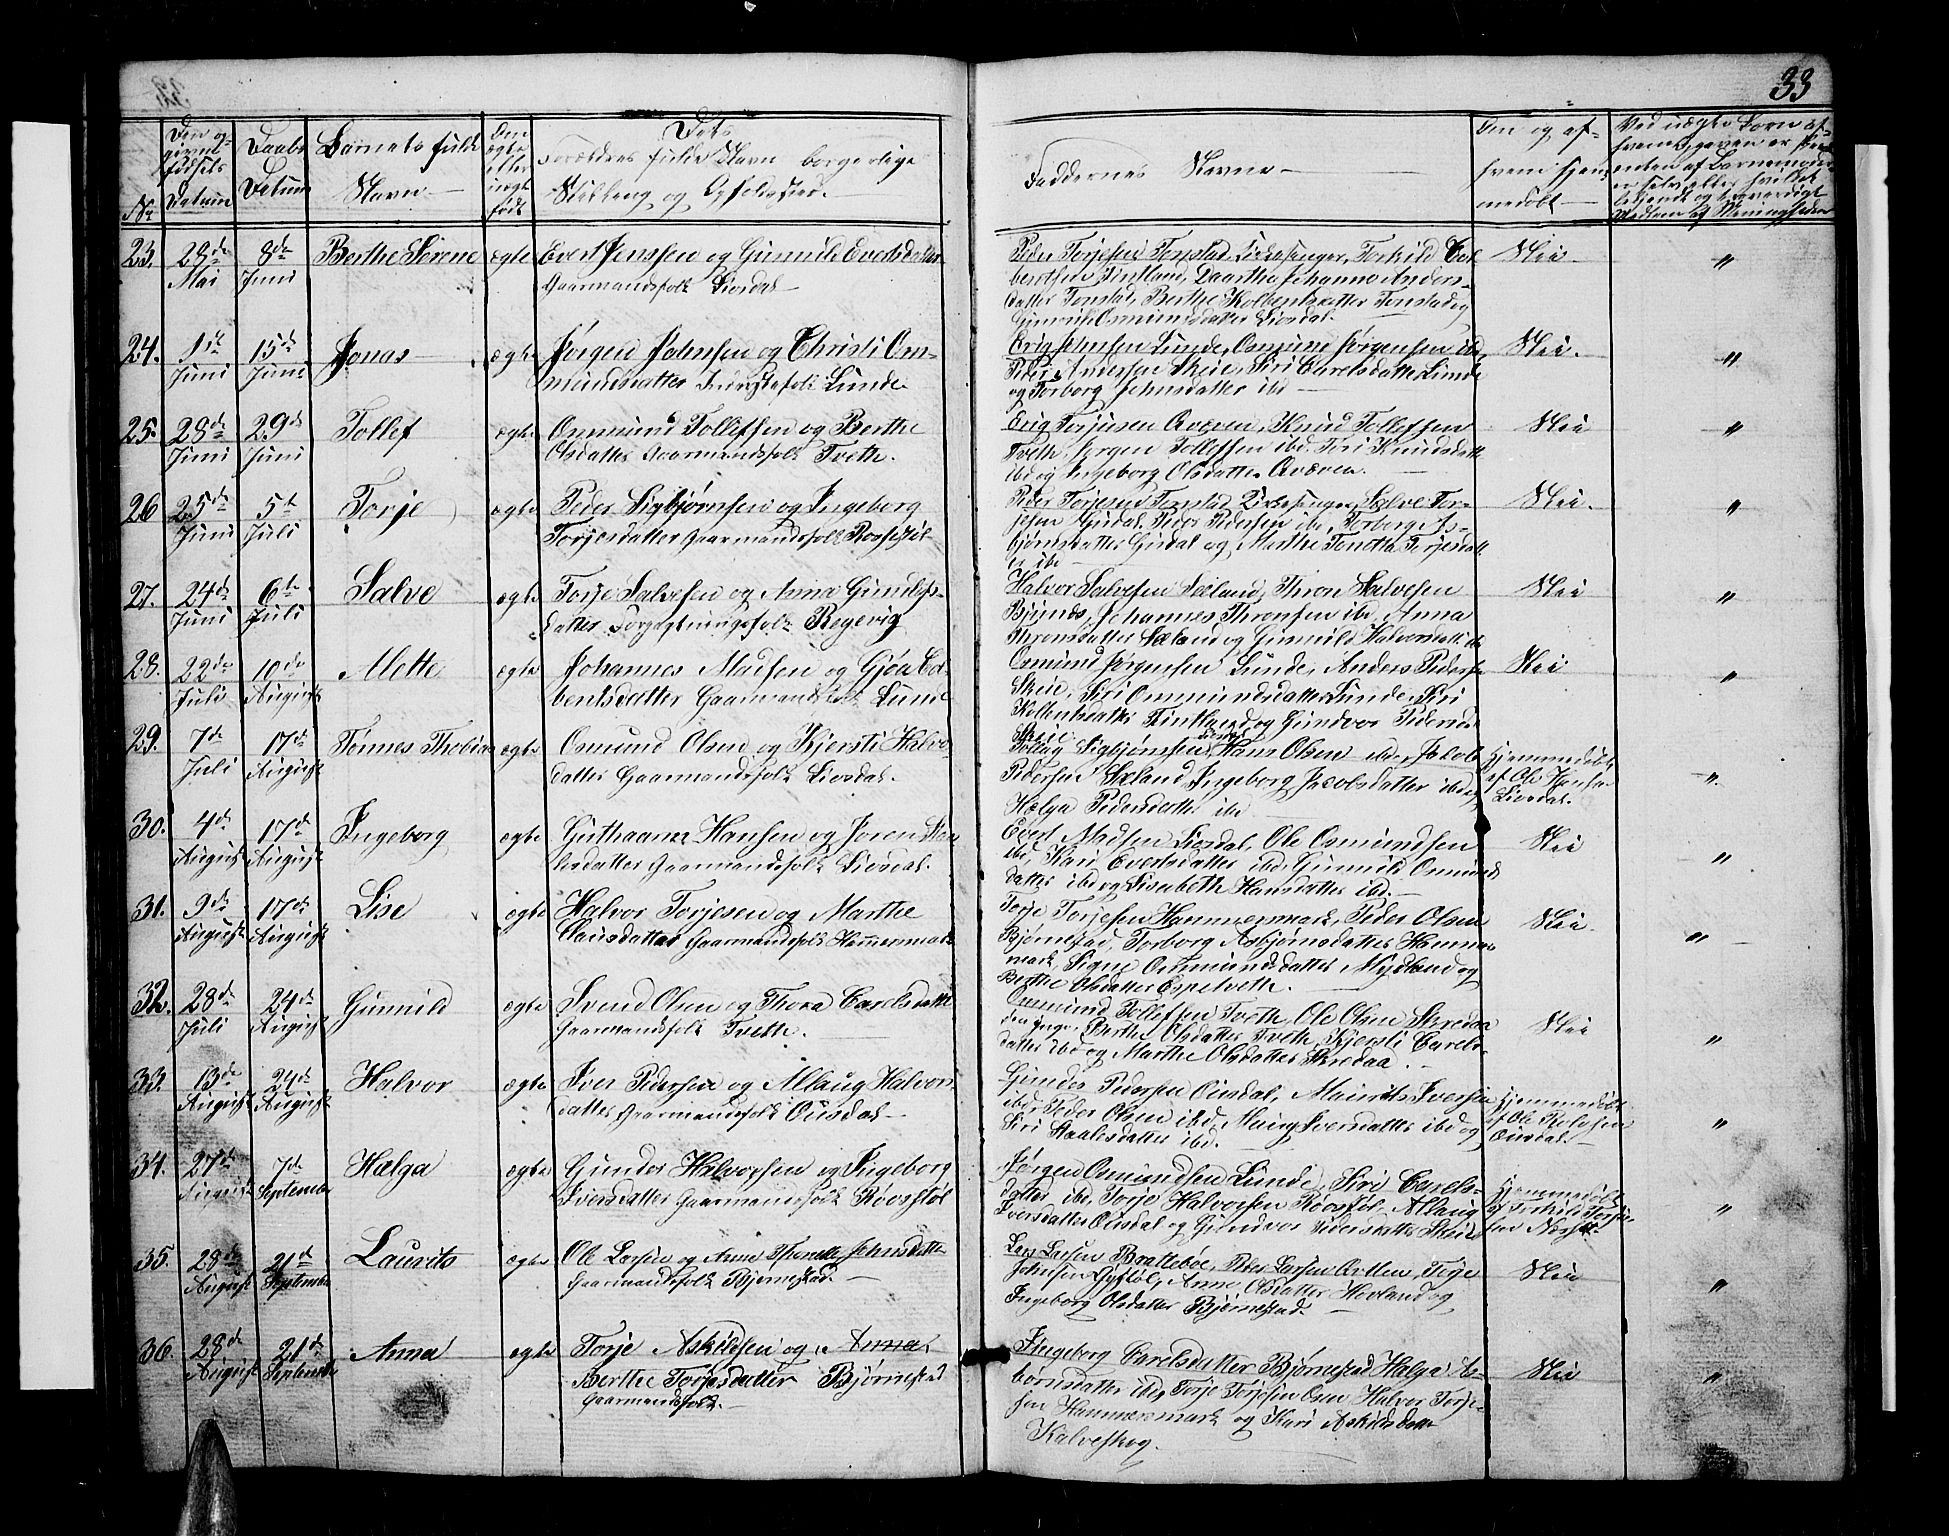 33
No
Datum
Daabs
Datum
Barnets fulde
Navn
Dets
Forældres fulde Navn borgerlige
Stilling og Opholdssted
Faddernes Navne
23. 28de Mai 8de Juni Berthe Serene ægte Evert Jenssen og Gunnild Evertsdatter
Gaardmandsfolk Liosdal
Peder Torjesen Tonstad, Kirkesanger, Torkild
Finkland, Daarthe Johanne Anders-
datter Tonstad, Berthe Kolbentsdatter Tonstad og
Osmundsdatter Liosdal.
Nei. "
24. 1ste Juni 15de Juni Jonas ægte Jørgen Johnsen og Christi Os-
mundsdatter Lunde
Erig Johnsen Lunde, Osmund Jørgensen ibd,
Peder Andersen Skeie, Siri Carelsdatter Lunde
og Torborg Johnsdatter ibd
Nei. "
25. 28de Juni 29de Juni Tollef ægte Osmund Tollefsen og Berthe
Olsdatter Gaardmandsfolk Tveth.
Erig Torjusen Qvæven, Knud Tollefsen
Tveth, Jørgen Tollefsen ibd, Siri Knudsdatt
ibd og Ingeborg Olsdatter Qvæven.
Nei "
26 25de Juni 5te Juli Torje ægte Peder Sigbjørnsen og Ingeborg
Torjesdatter Gaardmandsfolk
Peder Torjesen Tonstad Kirkesanger, Salve Tor-
jesen Girdal, Peder Pedersen ibd, Torborg As-
bjørnsdatter Girdal og Marthe Tonetta Torjesdatt
er ibd
Nei. "
27. 24de Juni 6te Juli Salve ægte Torje Salvesen og Anna Gundersdatter
Regevig
Halvor Salvesen Sæland, Thron Salvesen
Bjunes, Johannes Thronsen ibd, Anna
Thronsdatter Sæland og Gunnild Halvorsdatt ibd
Nei "
28. 22de Juli 10de August Mette ægte Johannes Madsen og Gjøa Col-
bentsdatter Gaardmandsfolk Lunde
Osmund Jørgensen Lunde, Anders Peders
Skeie, Siri Osmundsdatter Lunde, Siri
Kolbentsdatter Finkland og Gundvor Pedersda
Skeie
Nei "
29. 7de Juli 17de August Tønnes Thobias ægte Osmund Olsen og Kjersti Halvo
datter Gaardmandsfolk Liosdal.
Tollag Sigbjørnsen Liosdal, Hans Olsen ibd, Jakob
Pedersen Sæland, Ingeborg Jakobsdatter ibd og
Hælga Pedersdatter ibd
hjemmedøbt
af Ole Hansen
Liosdal. "
30. 4de August 17de August Ingeborg ægte Guthorm Hansen og Joren
datter Gaardmandsfolk Liosdal.
Evert Madsen Liosdal, Ole Osmundsen
ibd, Kari Evertsdatter ibd, Gunnild Osmunds
datter ibd og Lisabeth Hansdatter ibd.
Nei "
31. 9de August 17de August Lise ægte Halvor Torjesen og Marthe
Clausdatter Gaardmandsfolk Hammermark
Torje Torjesen Hammermark, Peder Olsen
Bjørnestad, Torborg Asbjørnsdatter Hammer
mark, Signe Osmundsdatter Mydland og
Berthe Olsdatter Espetveth.
Nei "
32. 28de Juli 24de August Gunnild ægte Svend Olsen og Thora Carelsdatte
Gaardmandsfolk Tveth.
Osmund Tollefsen Tveth, Ole Olsen Skredaa
den Ynge, Berthe Olsdatter Tveth, Kjersti Carels
datter ibd og Marthe Olsdatter Skredaa.
Nei "
33. 13de August 24de August Halvor ægte Iver Pedersen og Allaug Halvors
datter Gaardmandsfolk Ousdal
Gunder Pedersen Ousdal, Mauritz Iversen
ibd, Peder Olsen ibd, Iversdatter ibd og
Siri Staalesdatter ibd.
hjemmedøbt
af Ole Rolvsen
Ousdal. "
34. 27de August 7de September Hælga ægte Gunder Halvorsen og Ingeborg
Iversdatter Gaardmandsfolk Røvsstøl
Jørgen Osmundsen Lunde, Siri Carels-
datter ibd, Torje Halvorsen Røvsstøl, Allaug
Iversdatter Ousdal og Gundvor Pedersdatter Skeie
hjemmedøbt
af Torkild "
35. 28de August 21de September Lauvits ægte Ole Larsen og Anne Thonette Johnsdatte
Gaardmandsfolk Bjørnestad.
Lars Larsen Brattebøe, Peder Larsen
Johnsen Gystøl, Anne Olsdatter Hovland og
Ingeborg Olsdatter Bjørnestad.
Nei "
36. 28de August 21de September Anna ægte Torje Askildsen og Anna
Berthe Torjesdatter Bjørnestad
Gaardmandsfolk.
Ingeborg Carelsdatter Bjørnestad, Hælga As-
bjørnsdatter ibd, Torje Torjesen Osen, Halvor Torje-
sen Hammermark og Kari Askildsdatter
Kalveskog.
Nei "